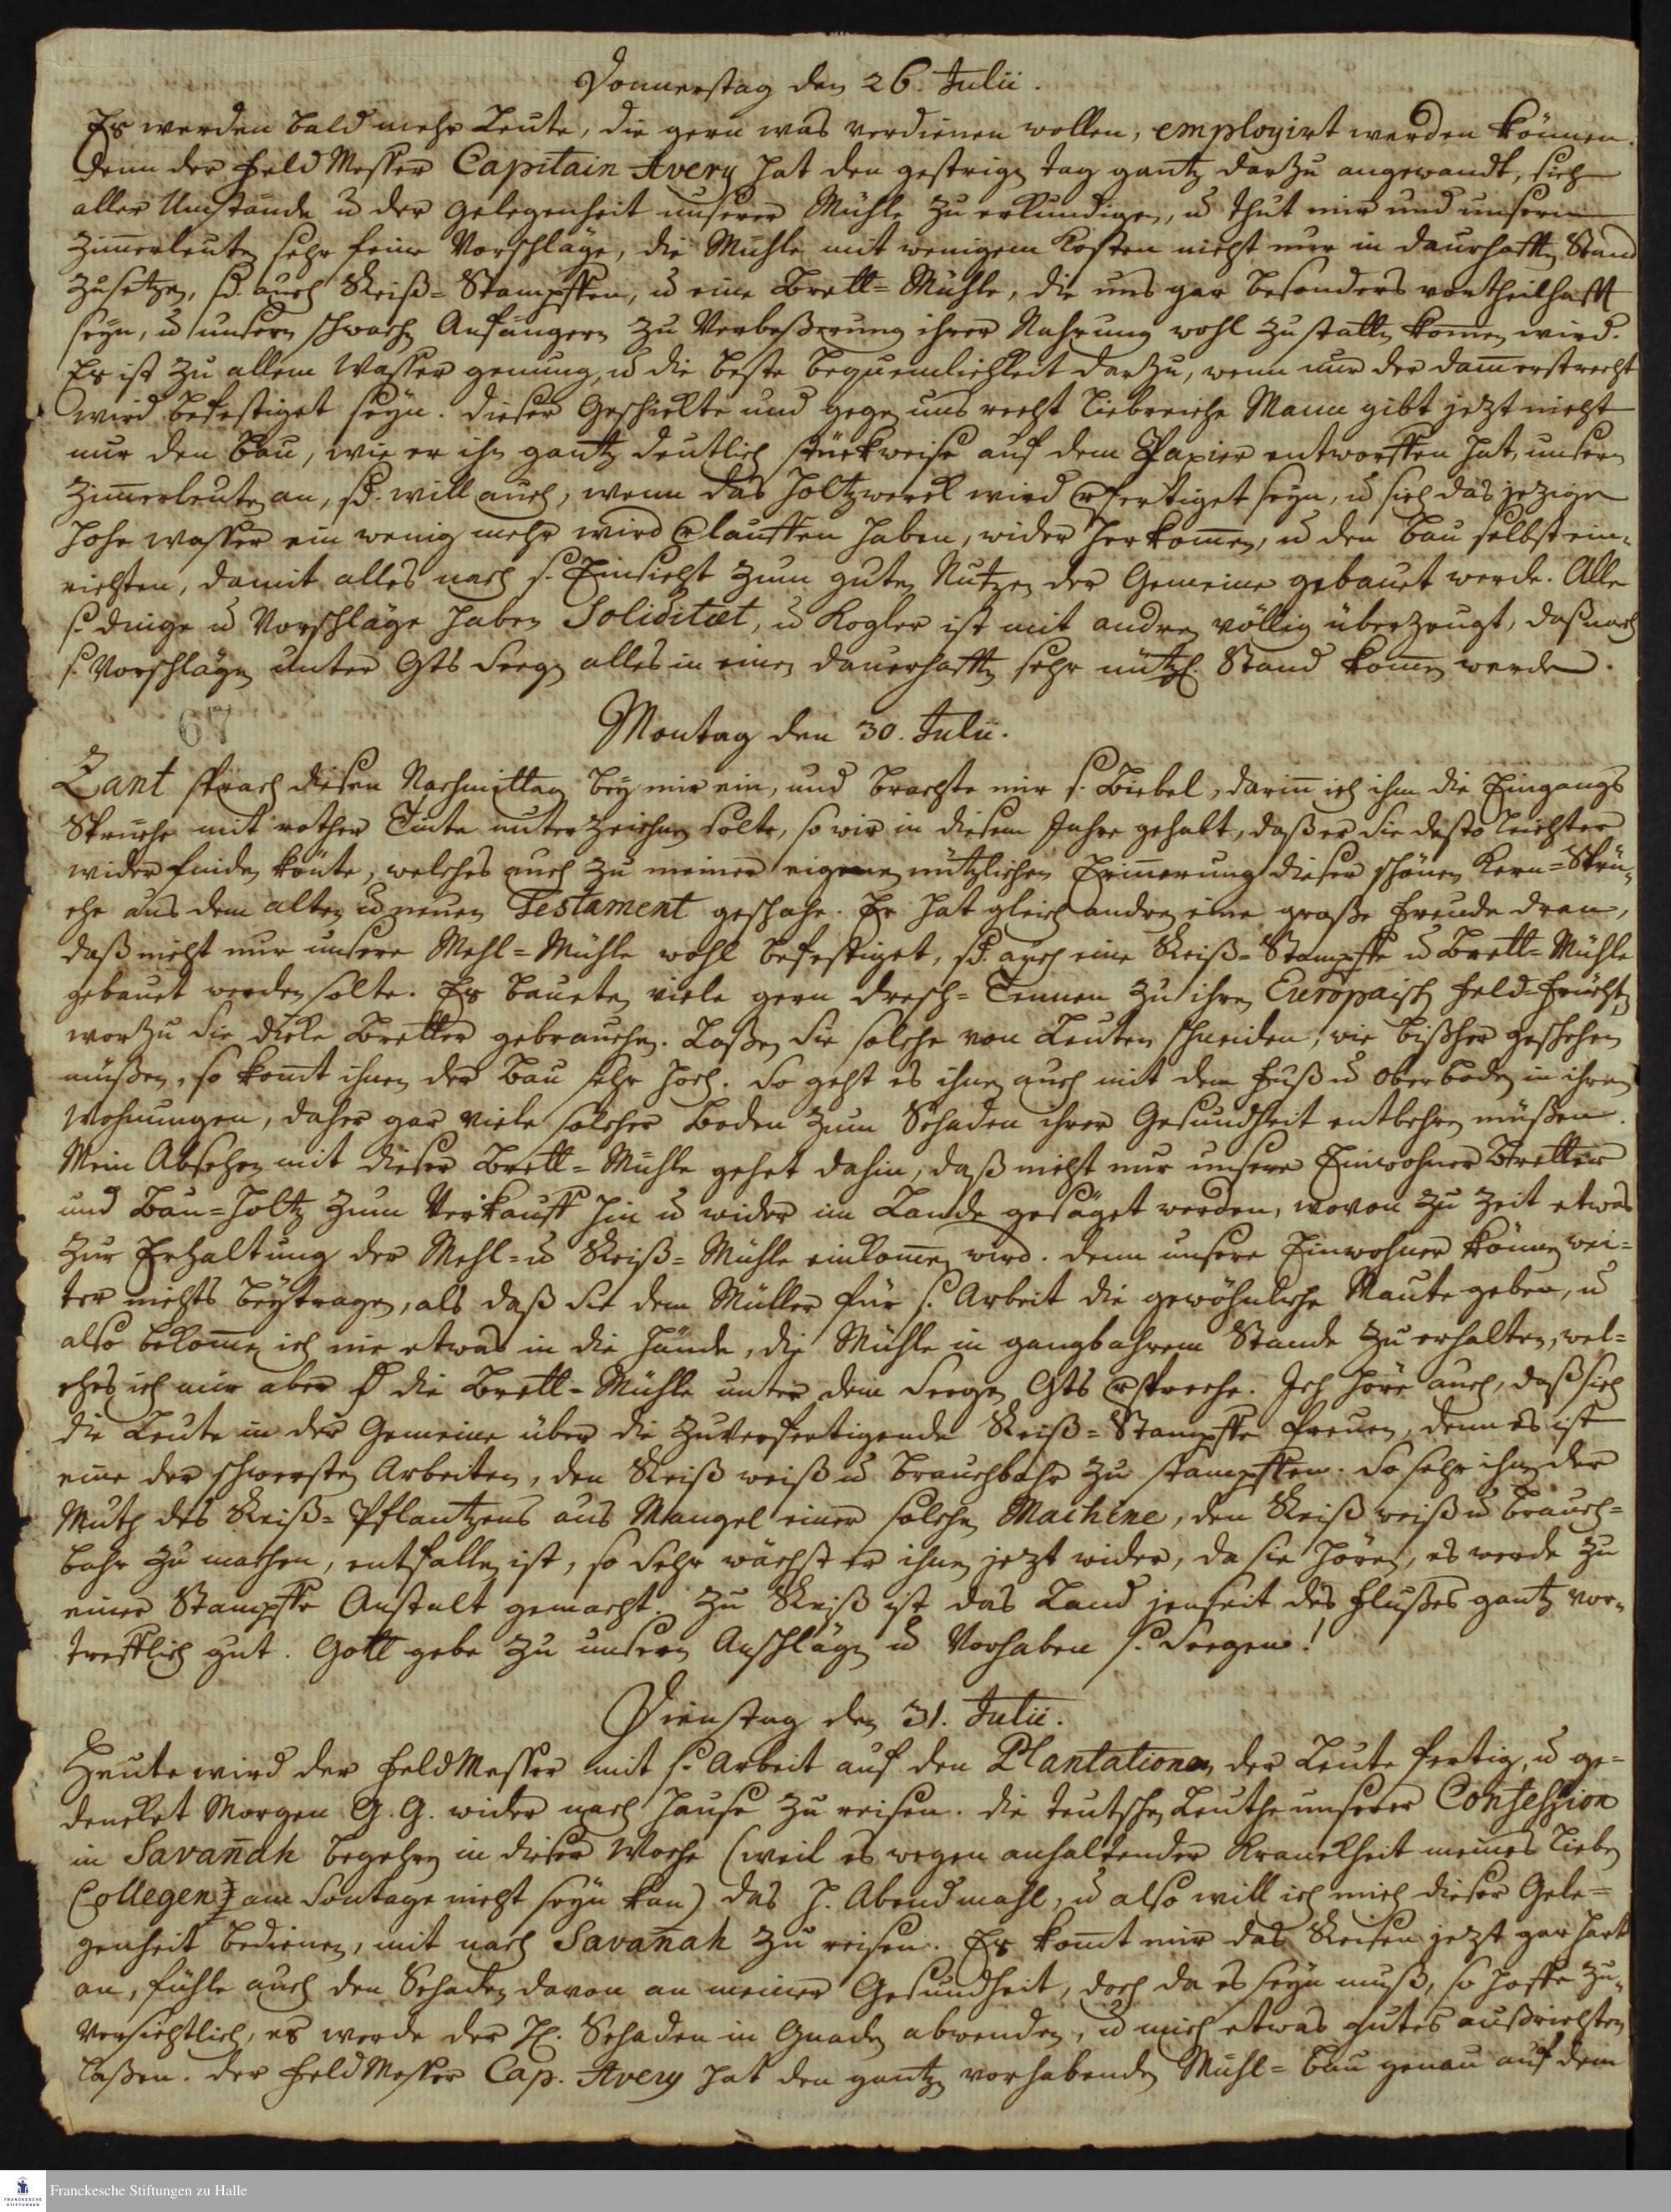 Donnerstag den 26. Julii.
Es werden bald mehr Leute, die gern was verdienen wollen, employirt werden können.
denn der FeldMesser Capitain Avery hat den gestrign tag gantz darzu angewandt, sich
aller Umstände u der gelegenheit unserer Mühle zu erkundigen, u thut mir und unsern
Zim̄erleuten sehr feine Vorschläge, die Mühle mit wenigem Kosten nicht nur in daurhafftn Stand
zusetzen, sd. auch Reiß=Stampffen, u eine Brett=Mühle, die uns gar besonders vortheilhafft
seyn, u unsern schwachn Anfängern zu Verbeßerung ihrer Nahrung wohl zu stattn kom̄en wird.
Es ist zu allem Wasser genung, u die beste bequemlichkeit darzu, wenn nur der dam̄ erst recht
wird befestiget seyn. dieser Geschickte und gegen uns recht liebreiche Mann gibt jezt nicht
nur den Bau, wie er ihn gantz deutlich stückweise auf dem Papier entworffen hat, unsern
Zim̄erleuten an, sd. will auch, wenn das Holtzwerck wird verfertiget seyn, u sich das jezige
hohe wasser ein wenig mehr wird verlauffen haben, wider herkom̄en, u den Bau selbst ein=
richten, damit alles nach s. Einsicht zum guten Nutzen der Gemeine gebauet werde. Alle
s. dinge u Vorschläge haben Soliditæt, u Kogler ist mit andren völlig überzeugt, daß nach
s. Vorschlägen unter Gts Seegn alles in einen dauerhafftn sehr nützl. Stand kom̄en werde.
67
Montag den 30. Julii.
Zant sprach diesen Nachmittag bey mir ein, und brachte mir s. Biebel, darin̄ ich ihm die Eingangs
Sprüche mit rother Tinte unterzeichnen solte, so wir in diesem Jahre gehabt, daß er sie desto leichter
wider finden könte, welches auch zu meiner eigenen nützlichen Erin̄erung dieser schönen Kern=Sprü=
che aus dem alten u neuen Testament geschahe. Er hat gleich andren eine große Freude dran,
daß nicht nur unsere Mehl=Mühle wohl befestiget, sd. auch eine Reiß=Stampffe u Brett=Mühle
gebauet werden solte. Es baueten viele gern dresch=Tennen zu ihren Europäisch Feld=Früchtn,
worzu sie dicke Bretter gebrauchen. Laßen sie solche von Leuten schneiden, wie bißher geschehen
müßen, so kom̄t ihnen der Bau sehr hoch. So geht es ihnen auch mit dem Fuß u oberboden in ihren
Wohnungen, daher gar viele solcher Boden zum Schaden ihrer Gesundheit entbehren müßen.
Mein Absehen mit dieser Brett=Mühle gehet dahin, daß nicht nur unsere Einwohner Bretter
und Bau=Holtz zum Verkauff hin u wider im Lande gesäget werden, wovon zu Zeit etwas
zur Erhaltung der Mehl= u Reiß=Mühle einkom̄en wird. denn unsere Einwohner können wei=
ter nichts beytragen, als daß sie dem Müller für s. Arbeit die gewöhnliche Maute geben, u
also bekom̄e ich nie etwas in die Hände, die Mühle in gangbahrem Stande zu erhalten, wel=
ches ich mir aber die Brett=Mühle unter dem Seegen Gts verspreche. Ich höre auch, daß sich
die Leute in der Gemeine über die zuverfertigende Reiß=Stampffe freuen, denn es ist
eine der schwersten Arbeiten, den Reiß weiß u brauchbahr zu stampffen. So sehr ihnen der
Muth des Reiß=Pflantzens aus Mangel einer solchen Machine, den Reiß weiß u brauch=
bahr zu machen, entfallen ist, so sehr wächst er ihnen jezt wider, da sie hören, es werde zu
einer Stampffe Anstalt gemacht. Zu Reiß ist das Land jenseit des Flußes gantz vor=
trefflich gut. Gott gebe zu unsern Anschlägen u Vorhaben s. Seegen!
Dienstag den 31. Julii.
Heute wird der FeldMesser mit s. Arbeit auf den Plantationen der Leute fertig, u ge=
dencket Morgen G. G. wider nach Hause zu reisen. die teutschen Leuthe unserer Confession
in Savan̄ah begehren in dieser Woche (weil es wegen anhaltender Kranckheit meines lieben
Collegen am Sontage nicht seyn kan) das H. Abendmahl, u also will ich mich dieser Gele=
genheit bedienen, mit nach Savan̄ah zu reisen. Es kom̄t mir das Reisen jezt gar hart
an, fühle auch den Schaden davon an meiner Gesundheit, doch da es seyn muß, so hoffe zu=
versichtlich, es werde der H. Schaden in Gnaden abwenden, u mich etwas gutes außrichten
laßen. der FeldMesser Cap. Avery hat den gantzen vorhabenden Mühl=Bau genau auf dem
Franckesche Stiftungen zu Halle